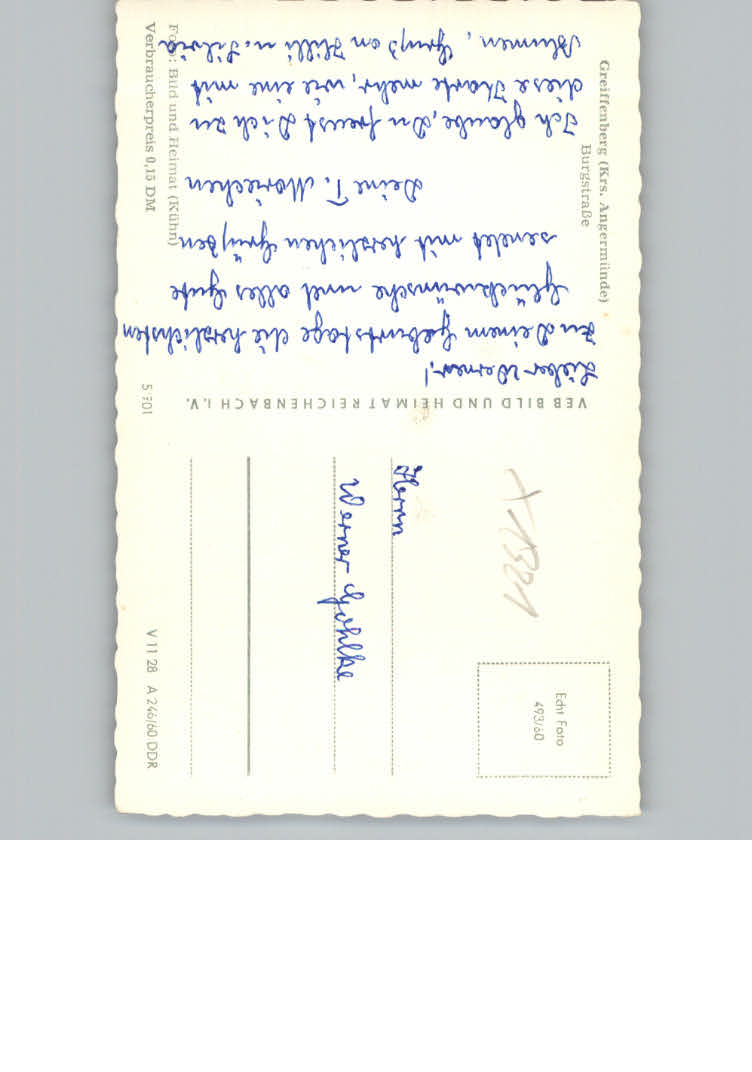 Greiffenberg (Krs. Angermünde)
Burgstraße
Lieber Werner!
Zu Deinem Geburtstage die herzlichsten
Glückwünsche und alles Gute
sendet mit herzlichen Grüßen
Deine T. Mariechen
Ich glaube, Du freust Dich zu
diese Karte mehr, wie eine mit
Blumen, Gruß an Willi u. Silvia
Foto: Bild und Heimat (Kühn)
Verbraucherpreis 0,15 DM
VEB BILD UND HEIMAT REICHENBACH I. V.
5 701
Echt Foto
493/60
Herrn
Werner Gohlke
V 11 28 A 246/60 DDR